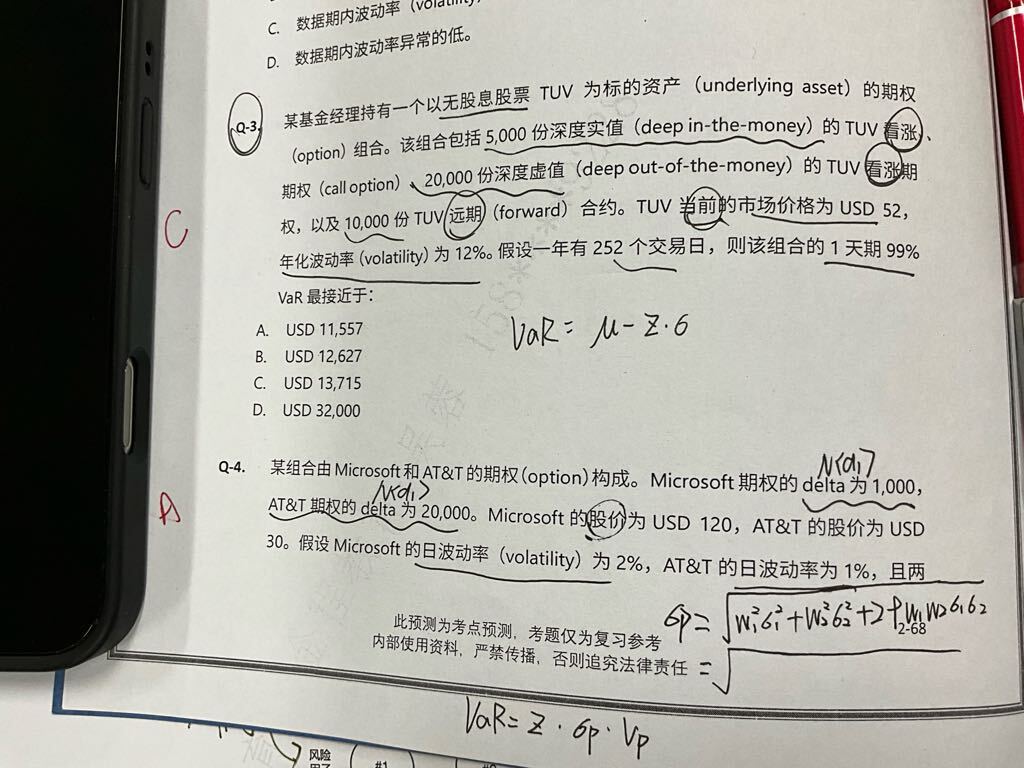 C. 数据期内波动率（volatility
D. 数据期内波动率异常的低。
Q-3. 某基金经理持有一个以无股息股票 TUV 为标的资产（underlying asset）的期权
（option）组合。该组合包括 5,000 份深度实值（deep in-the-money）的 TUV 看涨、
期权（call option）、20,000 份深度虚值（deep out-of-the-money）的 TUV 看涨期
权，以及 10,000 份 TUV 远期（forward）合约。TUV 当前的市场价格为 USD 52，
C
年化波动率（volatility）为 12%。假设一年有 252 个交易日，则该组合的 1 天期 99%
VaR 最接近于：
A. USD 11,557
VaR = μ - Z·σ
B. USD 12,627
C. USD 13,715
D. USD 32,000
N(d₁)
Q-4. 某组合由 Microsoft 和 AT&T 的期权（option）构成。Microsoft 期权的 delta 为 1,000，
N(d₁)
A
AT&T 期权的 delta 为 20,000。Microsoft 的股价为 USD 120，AT&T 的股价为 USD
30。假设 Microsoft 的日波动率（volatility）为 2%，AT&T 的日波动率为 1%，且两
σp = √W₁²σ₁² + W₂²σ₂² + 2ρW₁W₂σ₁σ₂
2-68
此预测为考点预测，考题仅为复习参考
内部使用资料，严禁传播，否则追究法律责任
= √
VaR = Z · σp · Vp
风险
#1